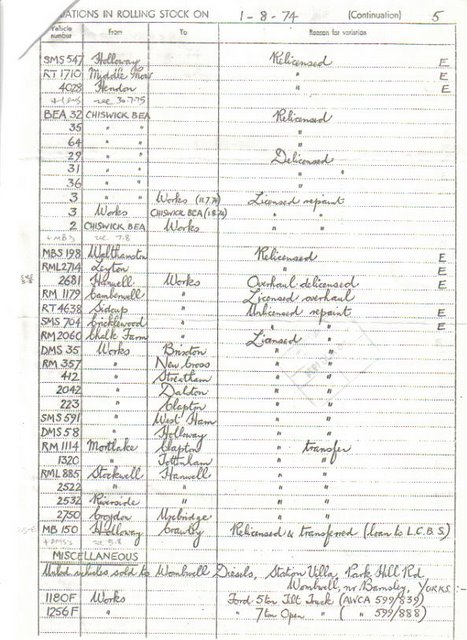 IATIONS IN ROLLING STOCK ON 1-8-74 (Continuation) 5
Vehicle number From To Reason for variation
SMS 547 Holloway Relicensed E
RT 1710 Middle Row " E
4028 Hendon " E
see 30.7.75
BEA 32 CHISWICK BEA Relicensed
35 " " "
64 " " "
29 " " Delicensed
31 " " " "
36 " " "
3 " " Works (11.7.74) Licensed repaint
3 Works CHISWICK BEA (1.8.74) " "
2 CHISWICK BEA Works " "
+ MB's 7.8
MBS 198 Walthamstow Relicensed E
RML2714 Leyton " E
2681 Hanwell Works Overhaul delicensed E
RM 1179 Camberwell " Licensed overhaul
RT 4638 Sidcup " Unlicensed repaint E
SMS 704 Cricklewood " " " E
RM 2060 Chalk Farm " Licensed "
DMS 35 Works Brixton " "
RM 357 " New Cross " "
412 " Streatham " "
2042 " Dalston " "
223 " Clapton " "
SMS 591 " West Ham " "
DMS 58 " Holloway " "
RM 1114 Mortlake Clapton " transfer
1320 " Tottenham " "
RML 885 Stockwell Hanwell " "
2522 " " " "
2532 Riverside " " "
2750 Croydon Uxbridge " "
MB 150 Holloway Crawley Relicensed & transferred (loan to L.C.B.S.)
+ DMS's see 5.8
MISCELLANEOUS
vehicles sold to Wombwell Diesels, Station Villa, Park Hill Rd
Wombwell, nr Barnsley, YORKS :-
1180F Works Ford 5 ton Tilt Truck (AWCA 599/839)
1256F " " 7 ton Open " ( " 599/888)